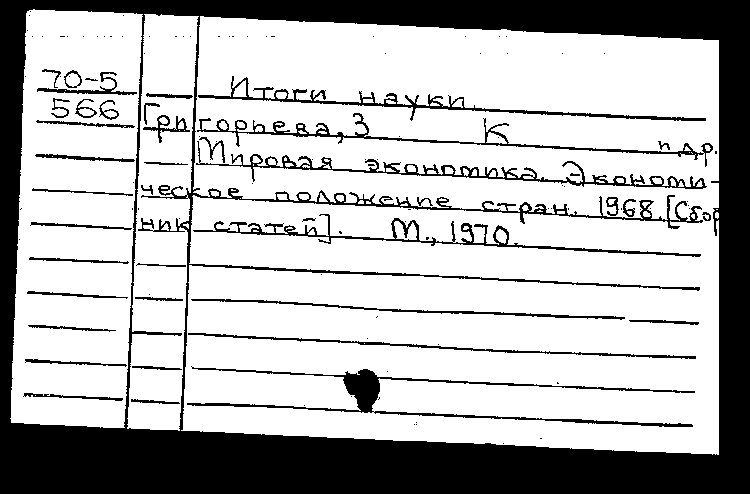 70-5 Итоги науки
566 Григорьева, З К и др.
Мировая экономика. Экономи-
ческое положение стран. 1968. [Сбор
ник статей]. М., 1970.